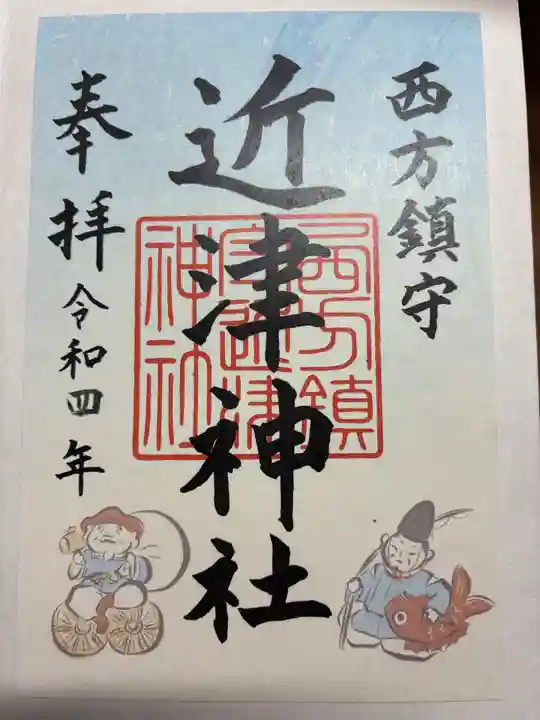 西方鎮守
近津神社
西方鎮
守近津
神社
奉拝令和四年